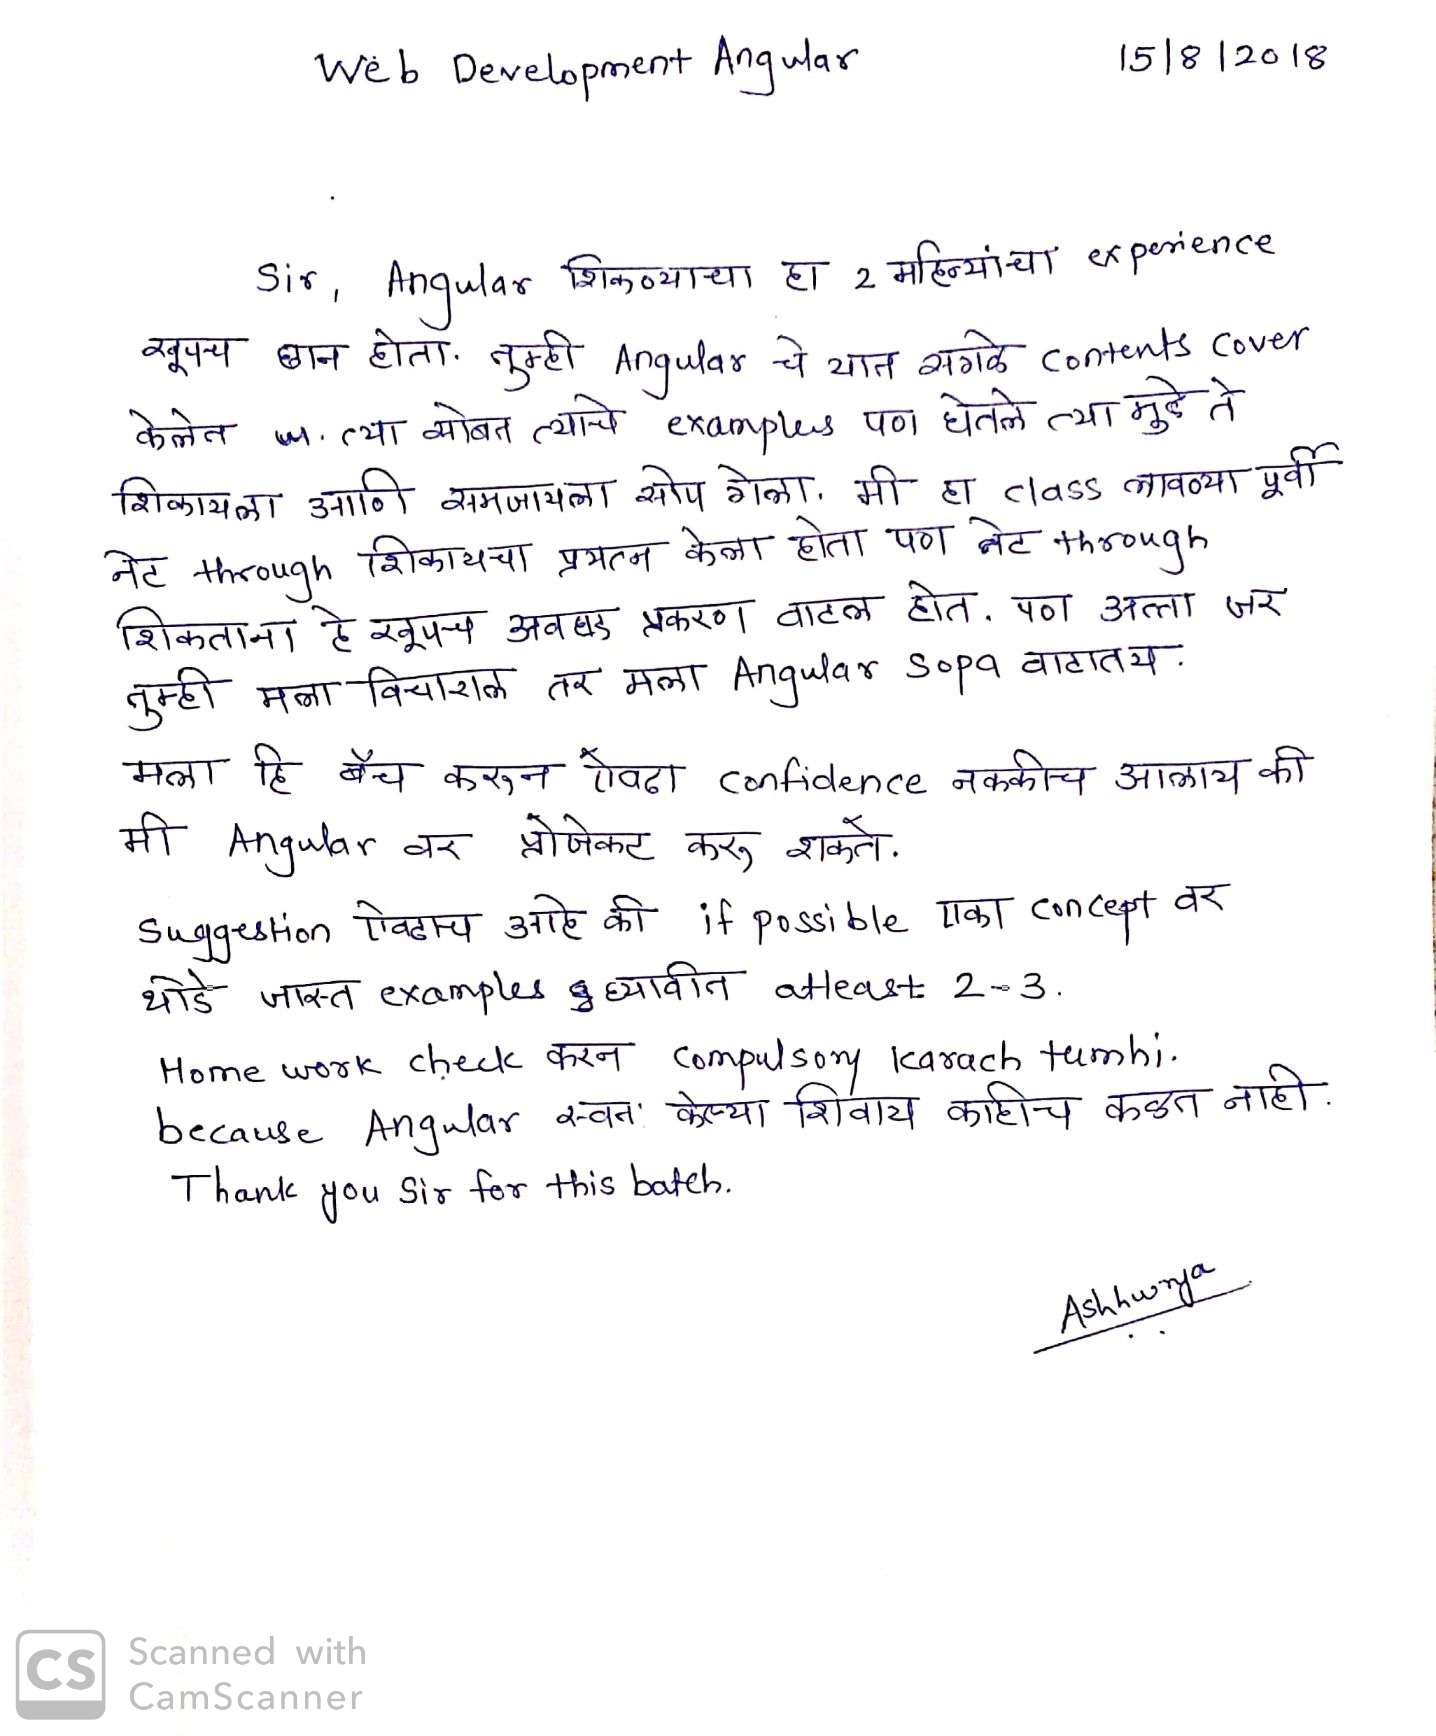 Web Development Angular 15/8/2018
Sir, Angular शिकण्याचा हा 2 महिन्यांचा experience
खूपच छान होता. तुम्ही Angular चे यात सगळे contents cover
केलेत त्या सोबत त्यांचे examples पण घेतले त्या मुडे ते
शिकायला आणि समजायला सोप गेला. मी हा class लावण्या पूर्वी
नेट through शिकायचा प्रयत्न केला होता पण नेट through
शिकताना हे खूपच अवघड प्रकरण वाटल होत. पण अत्ता जर
तुम्ही मला विचाराल तर मला Angular sopa वाटातय.
मला हि बॅच करून ऐवढा confidence नक्कीच आलाय की
मी Angular वर प्रोजेकट करू शकते.
Suggestion ऐवढाच आहे की if possible एका concept वर
थोडे जास्त examples घ्यावीत atleast 2-3.
Home work check करन compulsory karach tumhi.
because Angular स्वतः केल्या शिवाय काहीच कळत नाही.
Thank you Sir for this batch.
Ashhwrya
CS Scanned with
CamScanner